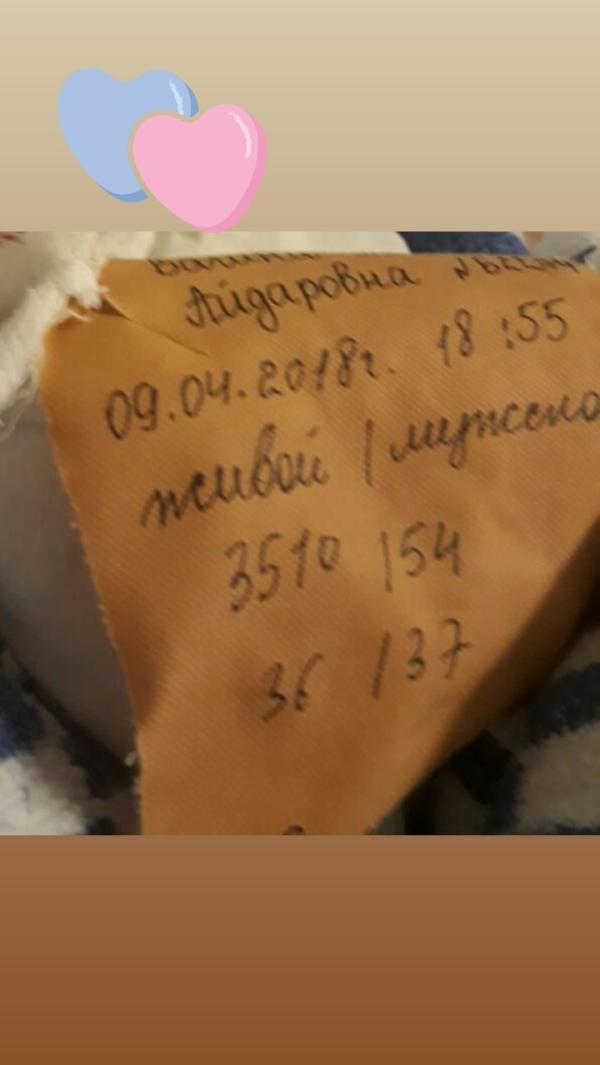 Айдаровна
09.04.2018г. 18:55
живой | мужско
3510 | 54
36 | 37